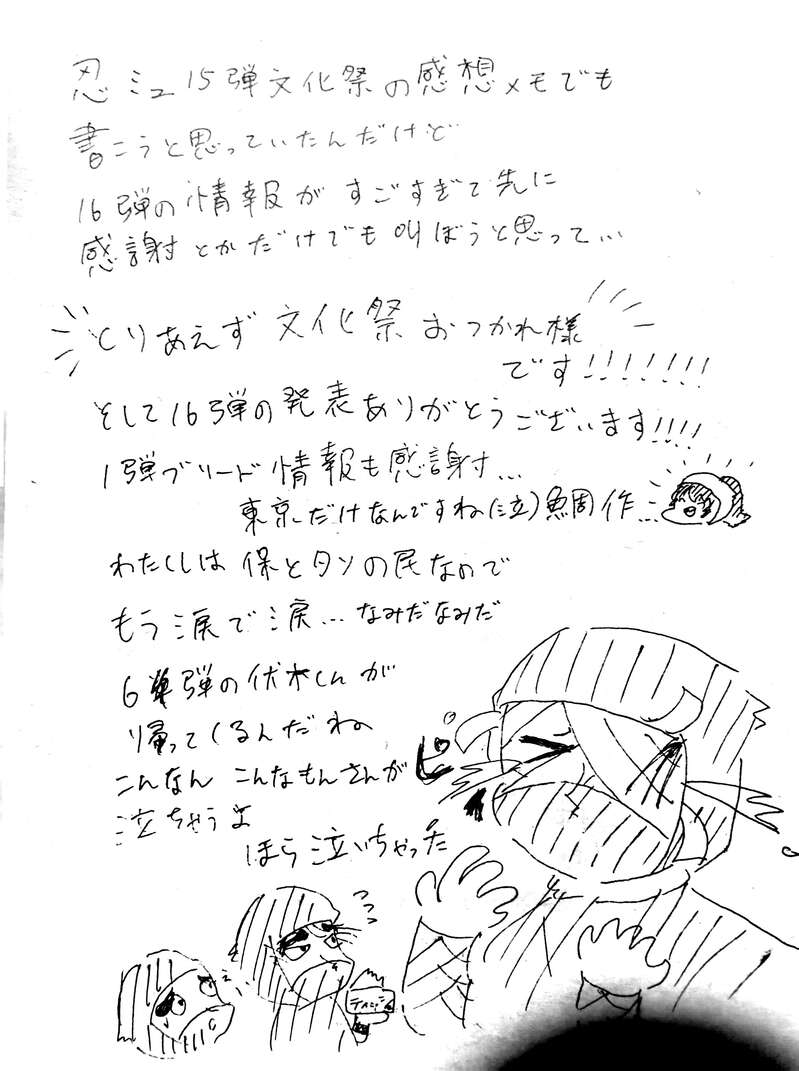 忍ミュ15弾文化祭の感想メモでも
書こうと思っていたんだけど
16弾の情報がすごすぎて先に
感謝とかだけでも叫ぼうと思って…
とりあえず文化祭おつかれ様
です!!!!!!!
そして16弾の発表ありがとうございます!!!!
1弾ブリード情報も感謝…
東京だけなんですね(泣)鯛周作…
わたくしは保とタソの民なので
もう涙で涙…なみだなみだ
6弾の伏木くんが
帰ってくるんだね
こんなん こんなもんさんが
泣ちゃうよ
ほら泣いちゃった
ピ